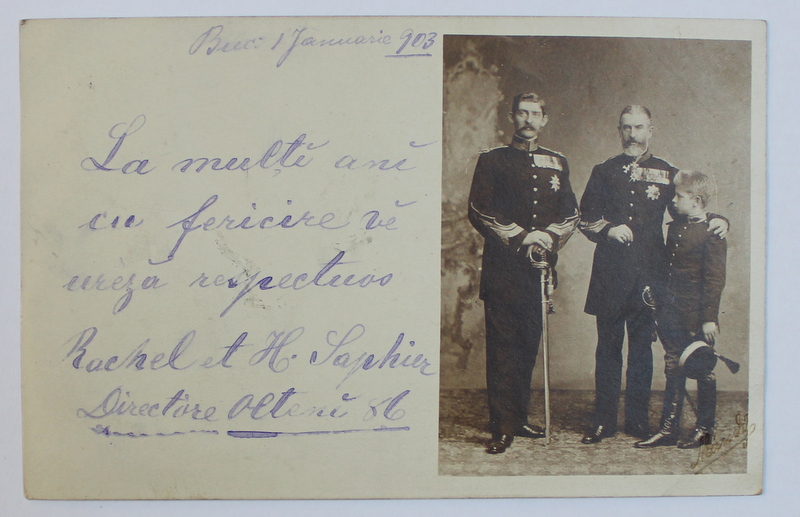 Buc. 1 Januarie 903
La mulțĭ anĭ
cu fericire vĕ
urezǎ respectuos
Rachel et H. Saphier
Directore Oltenĭ